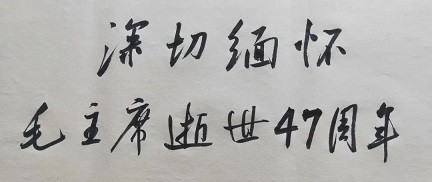 深切缅怀
毛主席逝世47周年